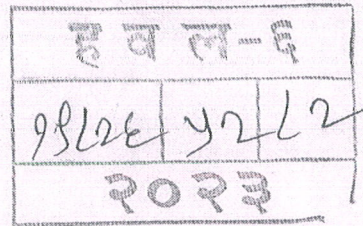 हवल-६
१९८२६ ५२ ८२
२०२३